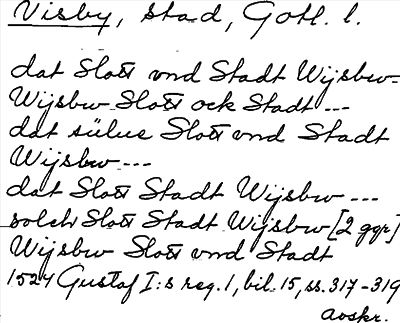 Visby, stad, Gotl. l.
dat Slott vnd Stadt Wijsbw-
Wijsbw Slott ock Stadt ---
dat sülue Slott vnd Stadt
Wijsbw ---
dat Slott Stadt Wijsbw ---
solch Slott Stadt Wijsbw [2 ggr]
Wijsbw Slott vnd Stadt
1524 Gustaf I:s reg. 1, bil. 15, ss. 317-319
avskr.